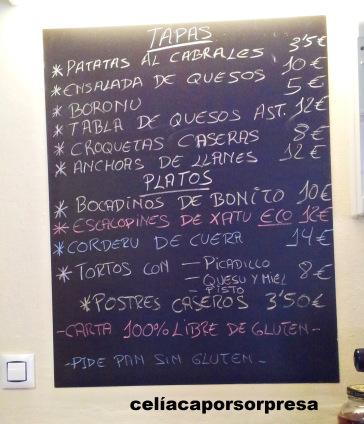 TAPAS
*PATATAS AL CABRALES 3'5€
*ENSALADA DE QUESOS 10€
*BORONU 5€
*TABLA DE QUESOS AST. 12€
*CROQUETAS CASERAS 8€
*ANCHOAS DE LLANES 12€
PLATOS
*BOCADINOS DE BONITO 10€
*ESCALOPINES DE XATU ECO 12€
*CORDERU DE CUERA 14€
*TORTOS CON — PICADILLO 8€
— QUESU Y MIEL
— PISTO
*POSTRES CASEROS 3'50€
-CARTA 100% LIBRE DE GLUTEN-
-PIDE PAN SIN GLUTEN-
celíacaporsorpresa